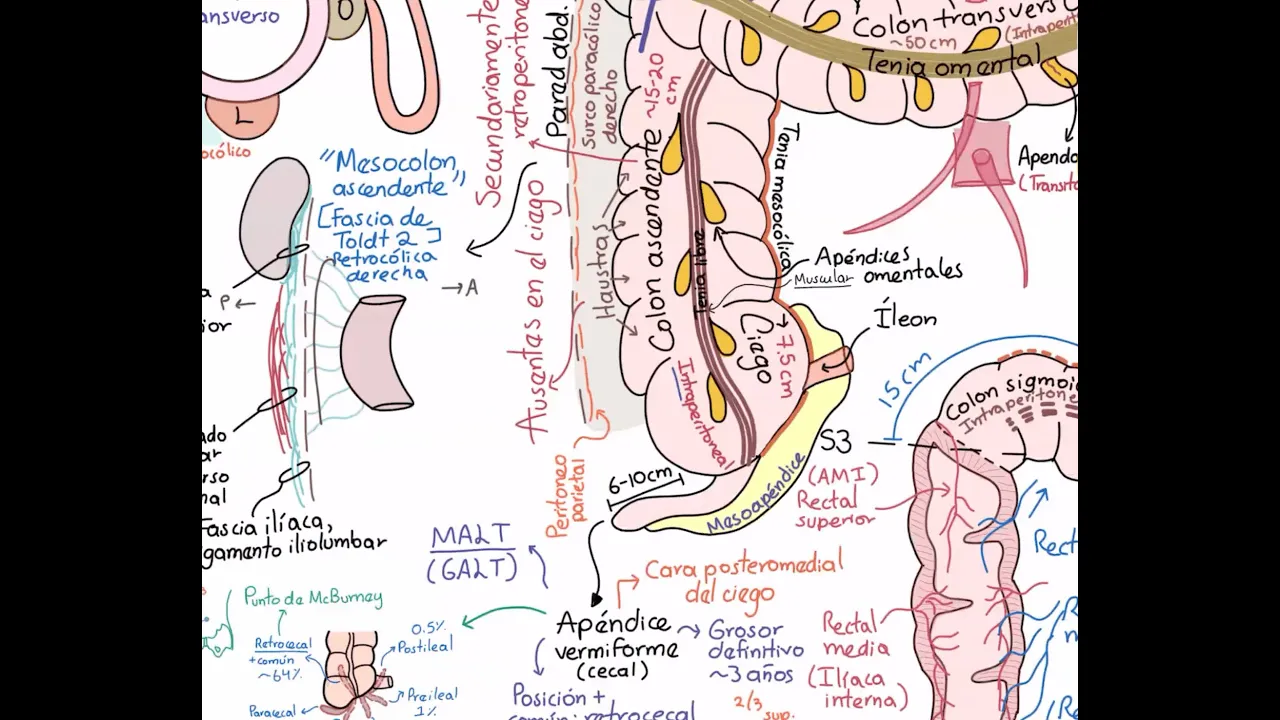 ansverso
L
ocólico
"Mesocolon
ascendente"
[Fascia de
Toldt 2]
Retrocólica
derecha
P←
→A
ior
ado
ar
rso
nal
Fascia ilíaca,
gamento iliolumbar
Secundariamente
retroperitone
Pared abd.
Surco paracólico
derecho
Ausentas en el ciego
Haustras
Peritoneo
parietal
~15-20
cm
Colon ascendente
Tenia libre
Tenia mesocólica
Colon transverso
~50cm
(Intraperit
Tenia omental
Apendo
(Transito
Apéndices
Muscular omentales
Íleon
Ciego
7.5 cm
Intraperitoneal
6-10cm
Mesoapéndice
15 cm
Colon sigmoi
Intraperitone
S3
(AMI)
Rectal
superior
Rect
MALT
(GALT)
Cara posteromedial
del ciego
Apéndice
vermiforme
(cecal)
Grosor
definitivo
~3 años
Rectal
media
(Ilíaca
interna)
2/3
sup.
Posición +
común: retrocecal
Punto de McBurney
Retrocecal
+común
~64%
0.5%
Postileal
Preileal
1%
Paracecal